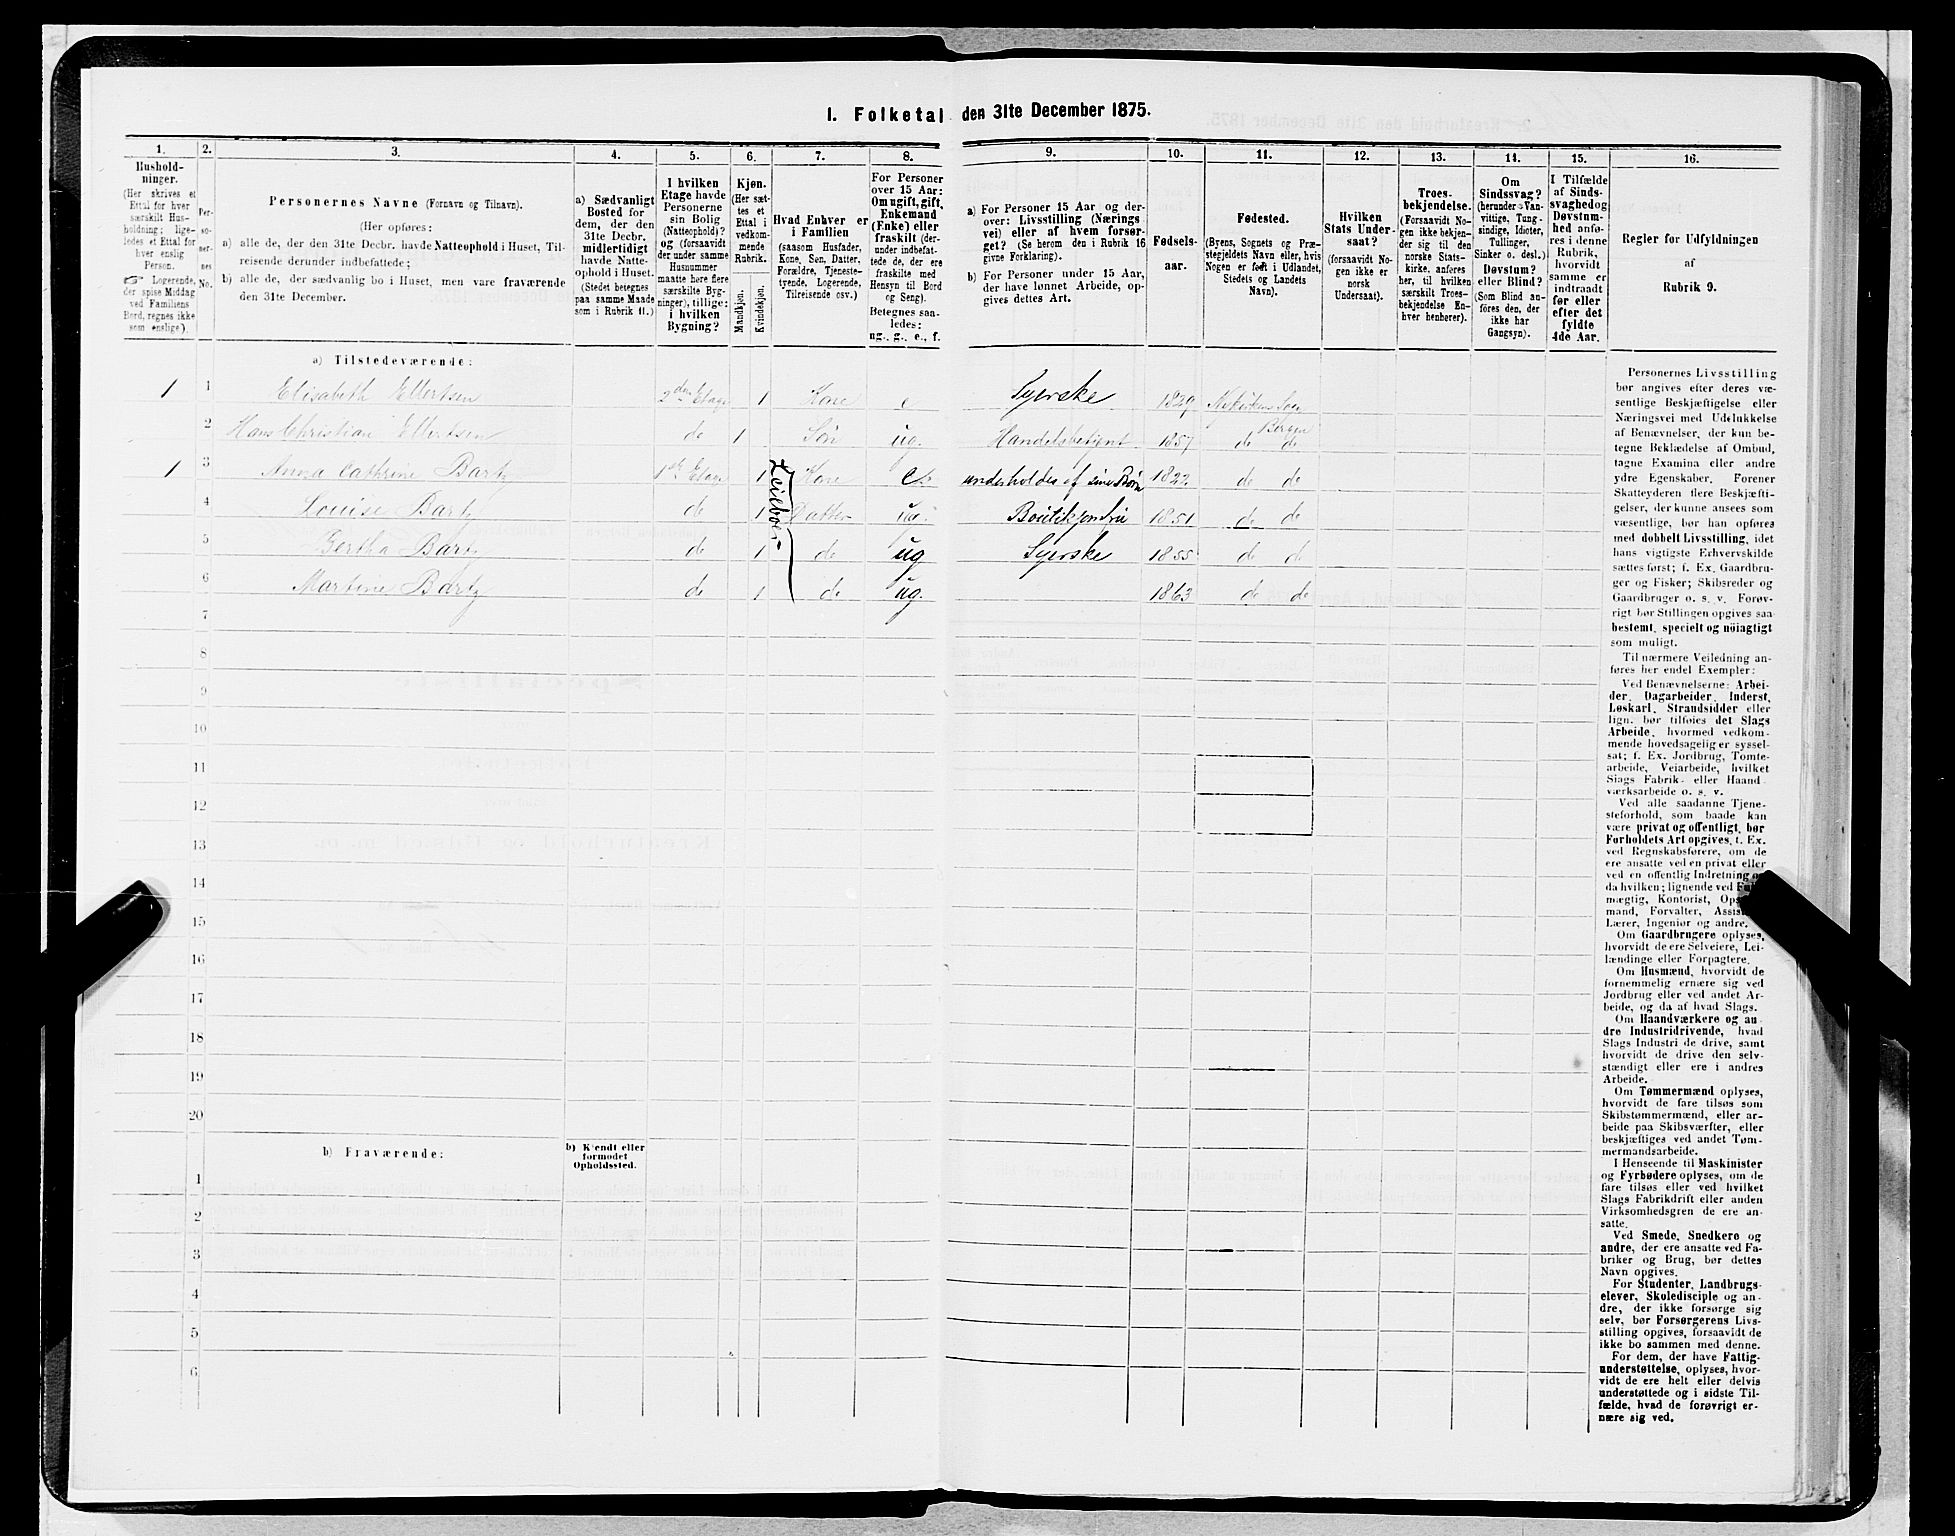 I. Folketal den 31te December 1875.
1.
Husholdninger.
(Her skrives et
Ettal for hver
særskilt Husholdning; ligeledes et Ettal for
hver enslig
Person.
☞ Logerende,
der spise Middag
ved Familiens
Bord, regnes ikke
som enslige).
2.
Personernes
No.
3.
Personernes Navne (Fornavn og Tilnavn).
(Her opføres:
a) alle de, der den 31te Decbr. havde Natteophold i Huset, Tilreisende derunder indbefattede;
b) alle de, der sædvanlig bo i Huset, men vare fraværende
den 31te December.
4.
a) Sædvanligt
Bosted for
dem, der den
31te Decbr.
midlertidigt
havde Natteophold i Huset.
(Stedet betegnes
paa samme Maade
som i Rubrik 11.)
5.
I hvilken
Etage havde
Personerne
sin Bolig
(Natteophold)?
og (forsaavidt
der under samme
Husnummer
maatte høre flere
særskilte Bygninger), tillige:
i hvilken
Bygning?
6.
Kjøn.
(Her sættes et
Ettal i
vedkommende
Rubrik.
Mandkjøn.
Kvindekjøn.
7.
Hvad Enhver er
i Familien
(saasom Husfader,
Kone, Søn, Datter,
Forældre, Tjenestetyende, Logerende,
Tilreisende osv.)
8.
For Personer
over 15 Aar:
Om ugift, gift,
Enkemand
(Enke) eller
fraskilt (derunder indbefattede de, der ere
fraskilte med
Hensyn til Bord
og Seng).
Betegnes saaledes:
ug., g., e., f.
9.
a) For Personer 15 Aar og derover: Livsstilling (Næringsvei) eller af hvem forsørget? (Se herom den i Rubrik 16
givne Forklaring).
b) For Personer under 15 Aar,
der have lønnet Arbeide, opgives dettes Art.
10.
Fødselsaar.
11.
Fødested.
(Byens, Sognets og Præstegjeldets Navn eller, hvis
Nogen er født i Udlandet,
Stedets og Landets
Navn).
12.
Hvilken
Stats Undersaat?
(forsaavidt Nogen ikke er
norsk
Undersaat).
13.
Troesbekjendelse.
(Forsaavidt Nogen ikke bekjender sig til den
norske Statskirke, anføres
her, til hvilken
særskilt Troesbekjendelse Enhver henhører).
14.
Om
Sindssvag?
(herunder Vanvittige, Tungsindige, Idioter,
Tullinger,
Sinker o. desl.)
Døvstum?
eller Blind?
(Som Blind anføres den, der
ikke har
Gangsyn).
15.
I Tilfælde
af Sindssvaghed og
Døvstumhed anføres i denne
Rubrik,
hvorvidt
samme er
indtraadt
før eller
efter det
fyldte
4de Aar.
16.
Regler for Udfyldningen
af
Rubrik 9.
a) Tilstedeværende:
1 1 Elisabeth Ellertsen 2den Etage 1 Kone e Syerske 1829 Nykirkens Sogn Bergen
2 Hans Christian Ellertsen do 1 Søn ug. Handelsbetjent 1857 do do
1 3 Anna Cathrine Bartz 1ste Etage 1 Kone e. underholdes af sine Børn 1822 do do
Leieboer
4 Louise Bartz do 1 Datter ug. Boutikjomfru 1851 do do
5 Bertha Bartz do 1 do ug Syerske 1855 do do
6 Martine Bartz do 1 do ug. 1863 do do
7
8
9
10
11
12
13
14
15
16
17
18
19
20
b) Fraværende:
b) Kjendt eller
formodet
Opholdssted.
1
2
3
4
5
6
Personernes Livsstilling
bør angives efter deres væsentlige Beskjæftigelse eller
Næringsvei med Udelukkelse
af Benævnelser, der kun betegne Beklædelse af Ombud,
tagne Examina eller andre
ydre Egenskaber. Forener
Skatteyderen flere Beskjæftigelser, der kunne ansees som
væsentlige, bør han opføres
med dobbelt Livsstilling, idet
hans vigtigste Erhvervskilde
sættes først; f. Ex. Gaardbruger og Fisker; Skibsreder og
Gaardbruger o. s. v. Forøvrigt bør Stillingen opgives saa
bestemt, specielt og nöiagtigt
som muligt.
Til nærmere Veiledning anføres her endel Exempler:
Ved Benævnelserne: Arbeider, Dagarbeider, Inderst,
Løskarl, Strandsidder eller
lign. bør tilføies det Slags
Arbeide, hvormed vedkommende hovedsagelig er sysselsat; f. Ex. Jordbrug, Tomtearbeide, Veiarbeide, hvilket
Slags Fabrik- eller Haandværksarbeide o. s. v.
Ved alle saadanne Tjenesteforhold, som baade kan
være privat og offentligt, bør
Forholdets Art opgives, t. Ex.
ved Regnskabsførere, om de
ere ansatte ved en privat eller
ved en offentlig Indretning
da hvilken; lignende ved
mægtig, Kontorist,
mand, Forvalter,
Lærer, Ingeniør og andre.
Om Gaardbrugere oplyses,
hvorvidt de ere Selveiere, Leilændinge eller Forpagtere.
Om Husmænd, hvorvidt de
fornemmelig ernære sig ved
Jordbrug eller ved andet Arbeide, og da af hvad Slags.
Om Haandværkere og andre Industridrivende, hvad
Slags Industri de drive, samt
hvorvidt de drive den selvstændigt eller ere i andres
Arbeide.
Om Tømmermænd oplyses,
hvorvidt de fare tilsøs som
Skibstømmermænd, eller arbeide paa Skibsværfter, eller
beskjæftiges ved andet Tømmermandsarbeide.
I Henseende til Maskinister
og Fyrbødere oplyses, om de
fare tilsøs eller ved hvilket
Slags Fabrikdrift eller anden
Virksomhedsgren de ere ansatte.
Ved Smede, Snedkere og
andre, der ere ansatte ved Fabriker og Brug, bør dettes
Navn opgives.
For Studenter, Landbrugselever, Skoledisciple og andre, der ikke forsørge sig
selv, bør Forsørgerens Livsstilling opgives, forsaavidt de
ikke bo sammen med denne.
For dem, der have Fattigunderstøttelse, oplyses, hvorvidt de ere helt eller delvis
understøttede og i sidste Tilfælde, hvad de forøvrigt ernære sig ved.